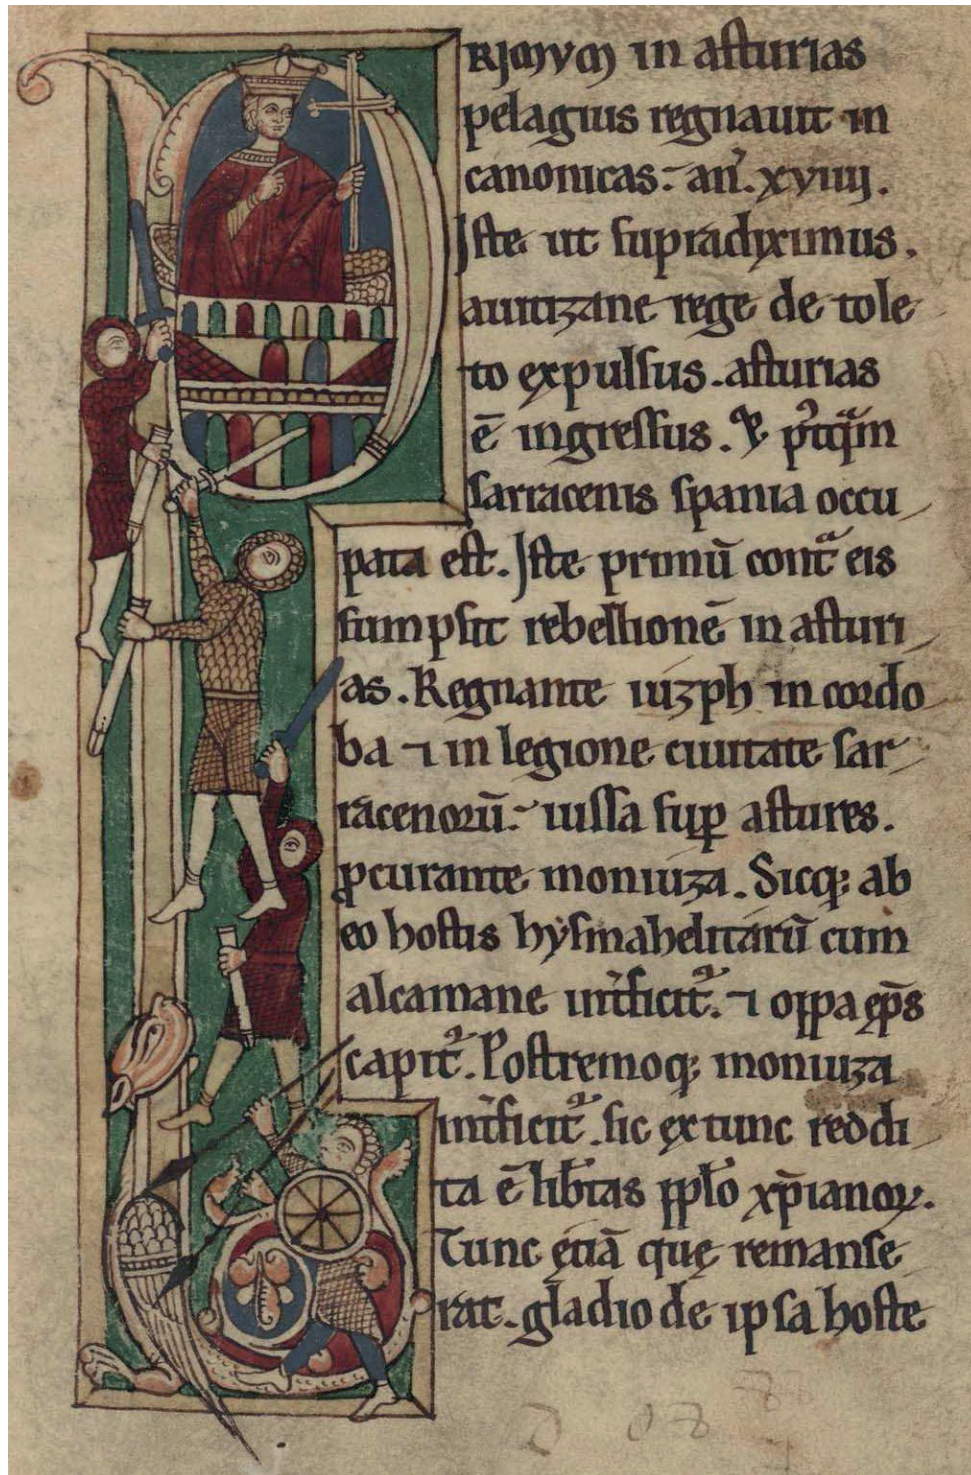 PRIMVM in asturias
pelagius regnauit in
canonicas. an̄. xviiij.
Iste ut supradiximus.
auitizane rege de tole
to expulsus. asturias
ē ingressus. & p̄tqͣm
sarracenis spania occu
pata est. Iste primū contͣ eis
sumpsit rebellionē in asturi
as. Regnante iuzph in cordo
ba ⁊ in legione ciuitate sar
racenorū. iussa suꝑ astures.
ꝓcurante moniuza. Sicqꝫ ab
eo hostis hysmahelitarū cum
alcamane int̄ficit᷑. ⁊ oppa ep̄s
capit᷑. Postremoqꝫ moniuza
int̄ficit᷑. sic ex tunc reddi
ta ē lib̄tas pplō xp̄ianoꝝ.
Tunc etiā quę remanse
rat. gladio de ipsa hoste